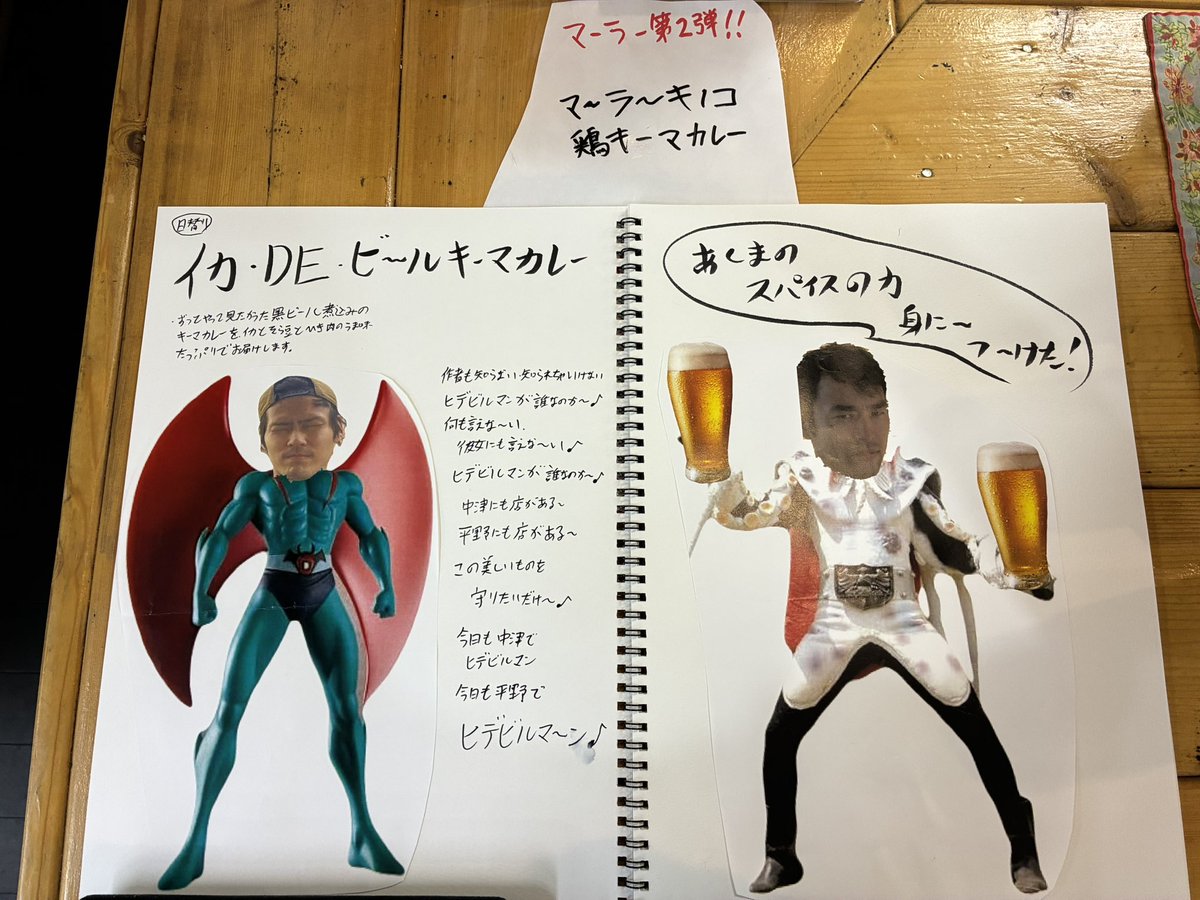 マーラー第2弾!!
マ〜ラ〜キノコ
鶏キーマカレー
日替り
イカ・DE・ビ〜ルキーマカレー
ずっとやって見たかった黒ビール煮込みの
キーマカレーをイカとそら豆とひき肉のうま味
たっぷりでお届けします。
作者も知らない 知られちゃいけない
ヒデビルマンが誰なのか〜♪
何も言えな〜い、
彼女にも言えな〜い♪
ヒデビルマンが誰なのか〜♪
中津にも店がある〜
平野にも店がある〜
この美しいものを
守りたいだけ〜♪
今日も中津で
ヒデビルマン
今日も平野で
ヒデビルマ〜ン♪
あくまの
スパイスの力
身に〜
つ〜けた!